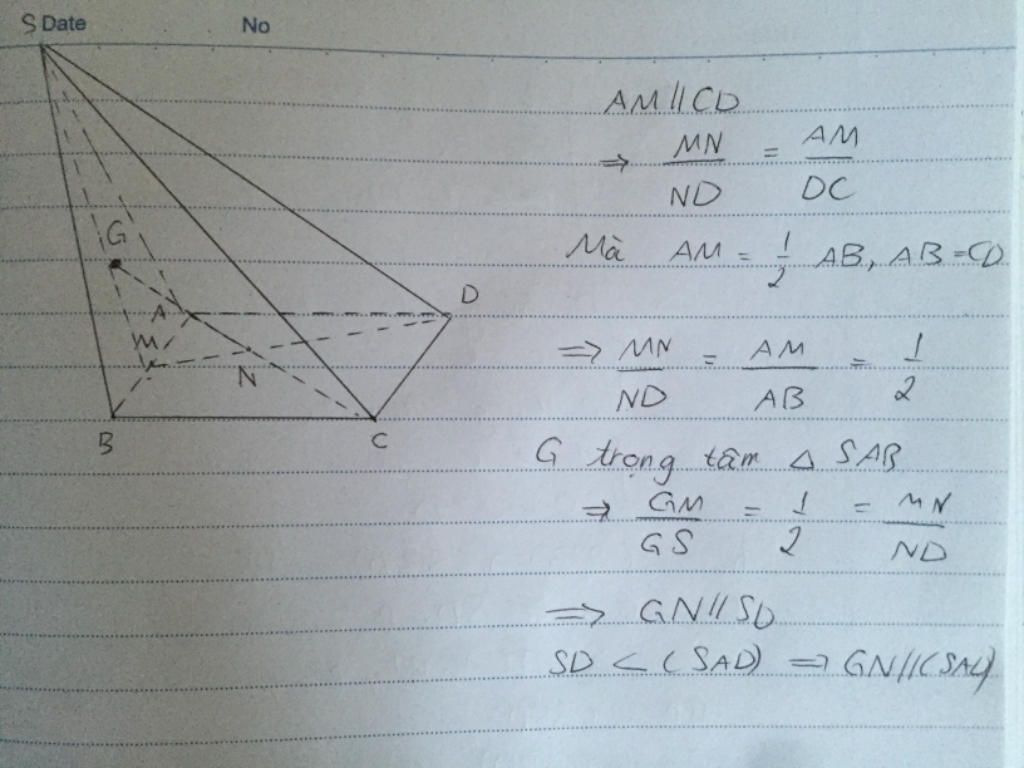 S Date No
AM // CD
⇒ MN/ND = AM/DC
Mà AM = 1/2 AB, AB = CD
⇒ MN/ND = AM/AB = 1/2
G trọng tâm △ SAB
⇒ GM/GS = 1/2 = MN/ND
⇒ GN // SD
SD ⊂ (SAD) ⇒ GN // (SAC)
G
D
A
M
N
B C